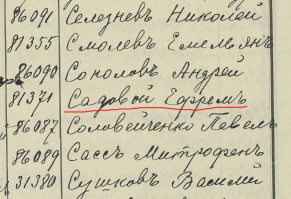 86091 Селезневъ Николай
81355 Смолевъ Емельянъ
86090 Соколовъ Андрей
81371 Садовой Ефремъ
86087 Соловейченко Павелъ
86089 Сассъ Митрофанъ
31380 Сушковъ Василий